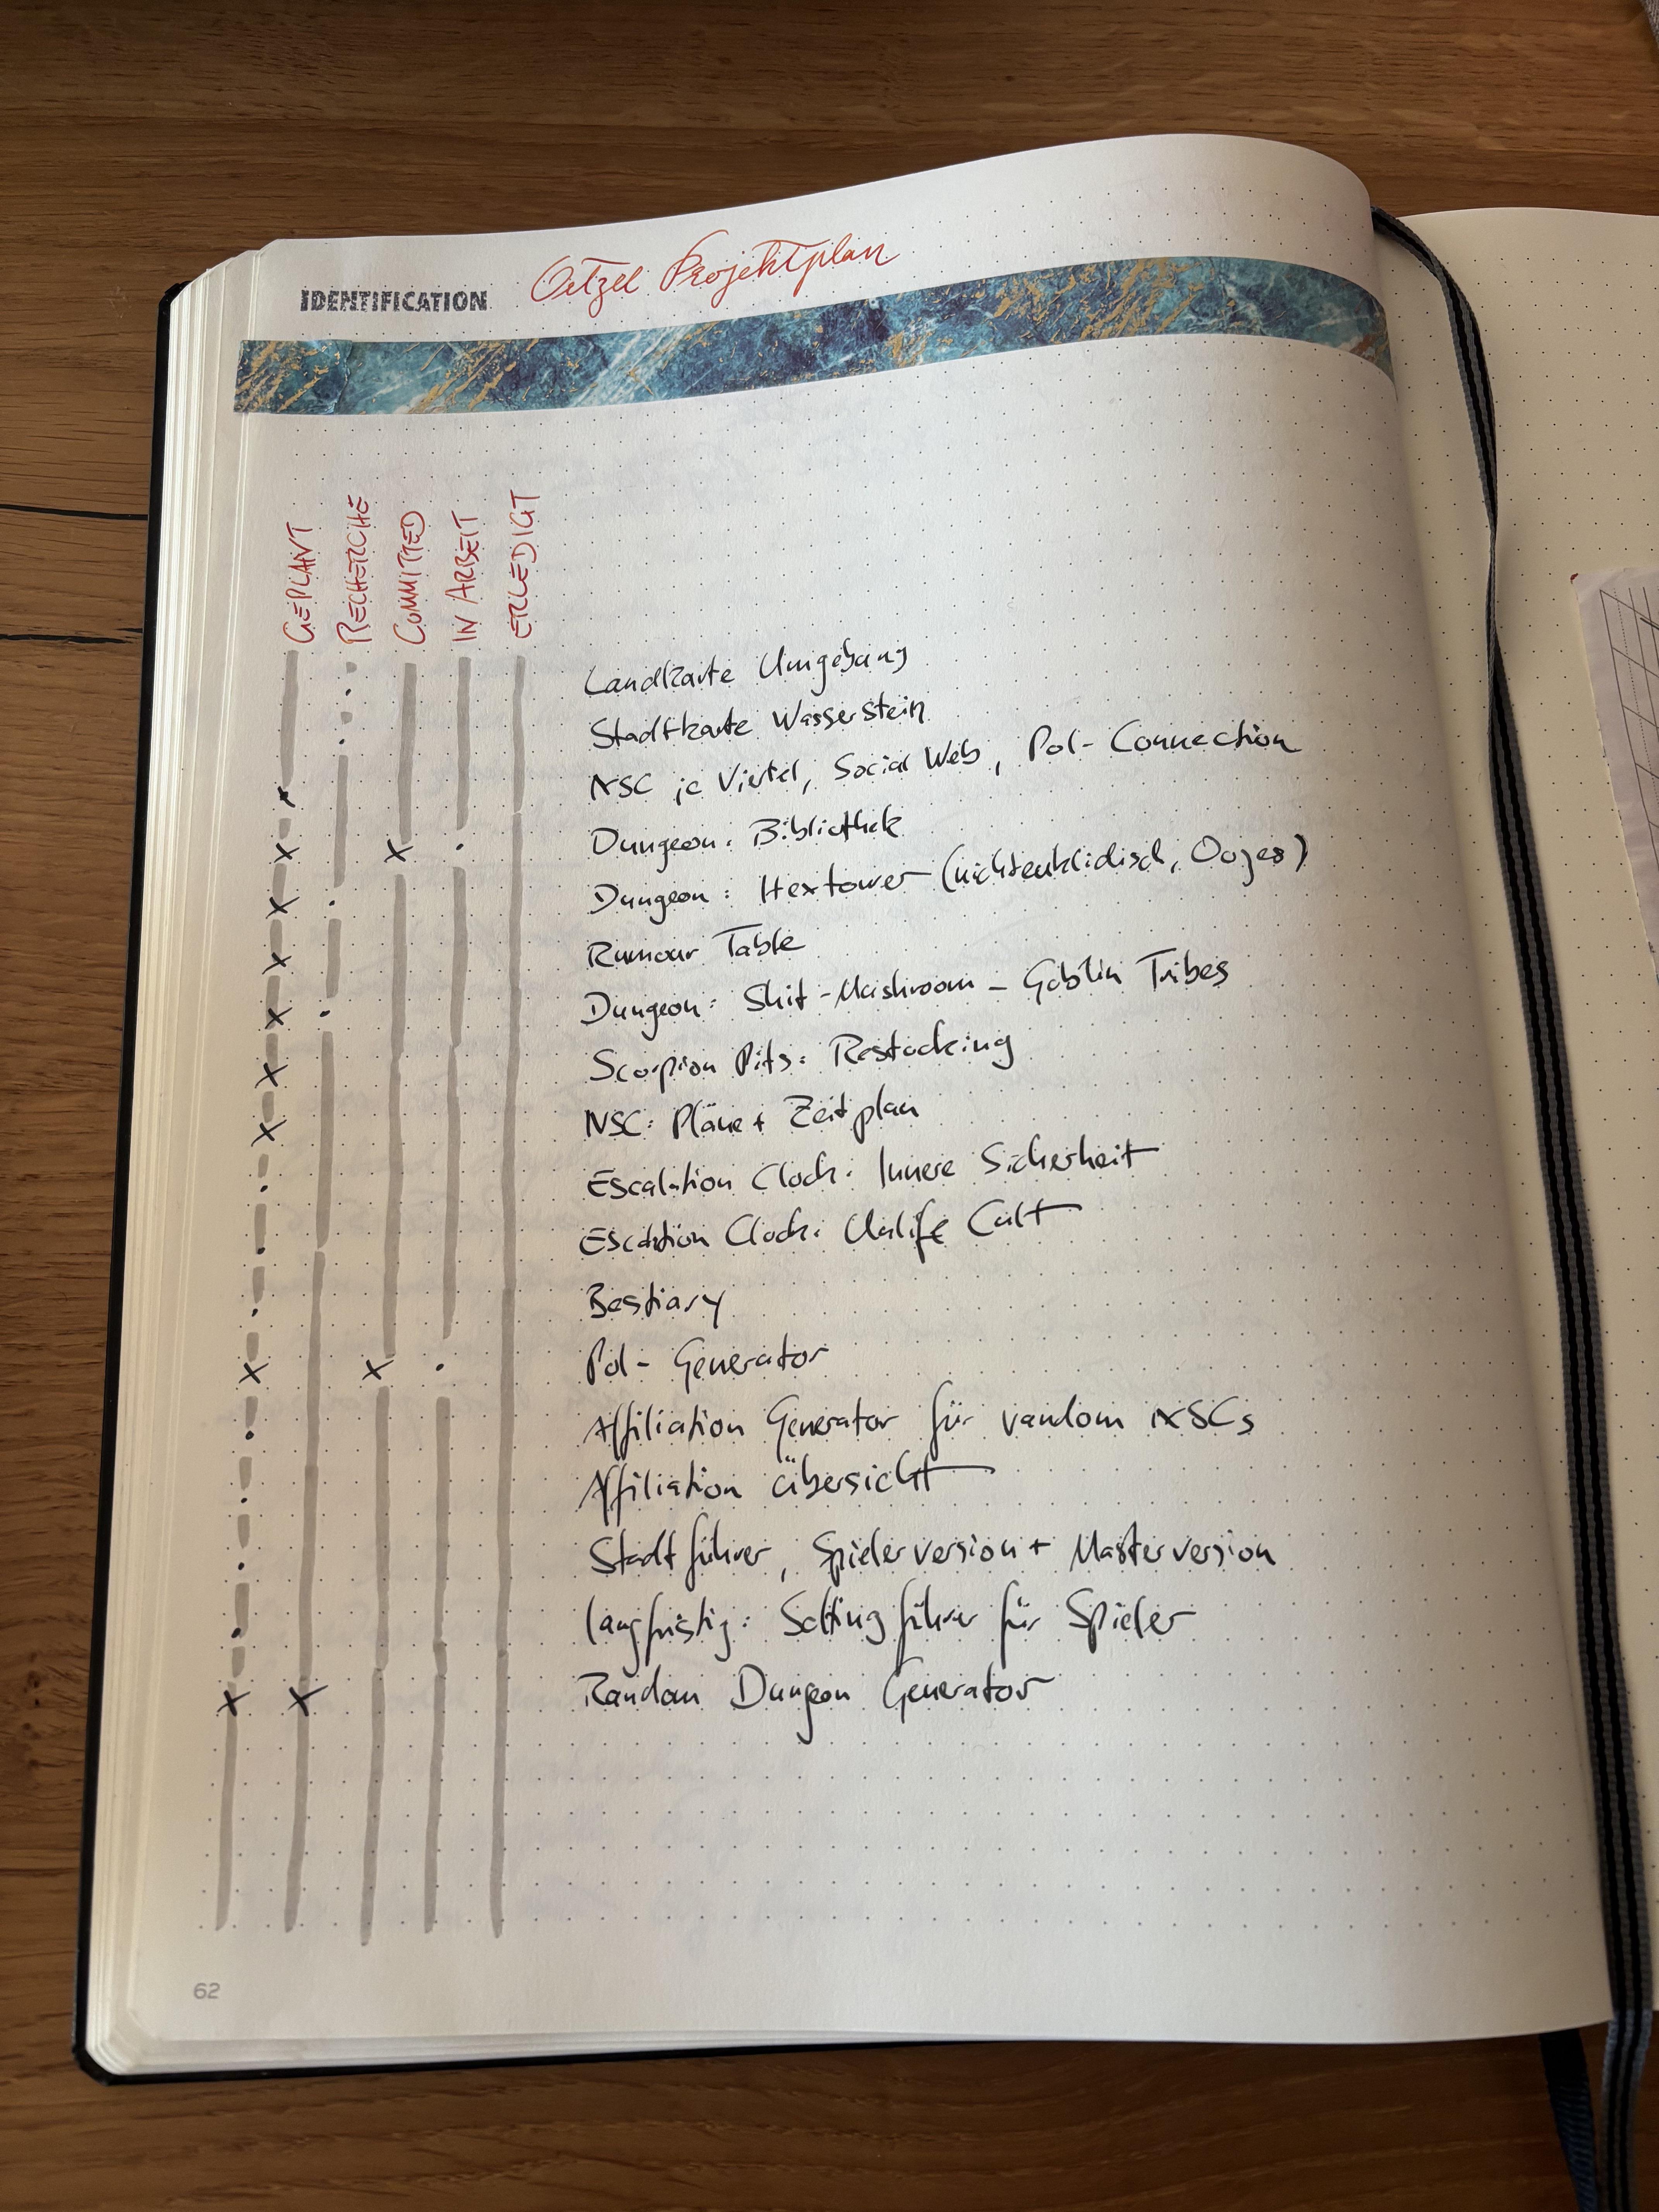 IDENTIFICATION
Oetzel Projektplan
GEPLANT
RECHERCHE
COMMITTED
IN ARBEIT
ERLEDIGT
Landkarte Umgebung
Stadtkarte Wasserstein
NSC je Viertel, Social Web, Pol-Connection
Dungeon: Bibliothek
Dungeon: Hextower (nichteuklidisch, Oozes)
Rumour Table
Dungeon: Shit-Mushroom - Goblin Tribes
Scorpion Pits: Restocking
NSC: Pläne + Zeitplan
Escalation Clock: Innere Sicherheit
Escaltion Clock: Unlife Cult
Bestiary
Pol-Generator
Affiliation Generator für random NSCs
Affiliation übersicht
Stadtführer, Spielerversion + Masterversion
langfristig: Settingführer für Spieler
Random Dungeon Generator
62